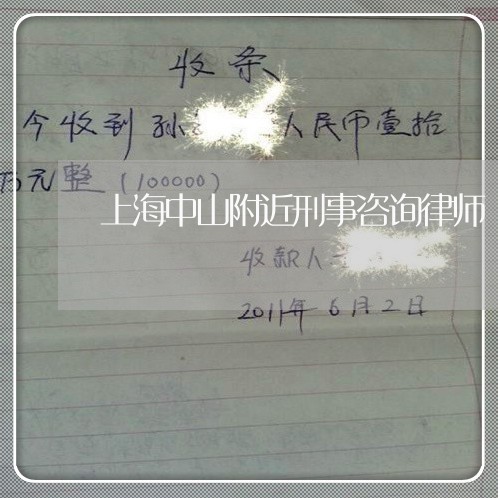 收条
今收到孙 人民币壹拾
万元整(100000)
上海中山附近刑事咨询律师
收款人
2011年6月2日